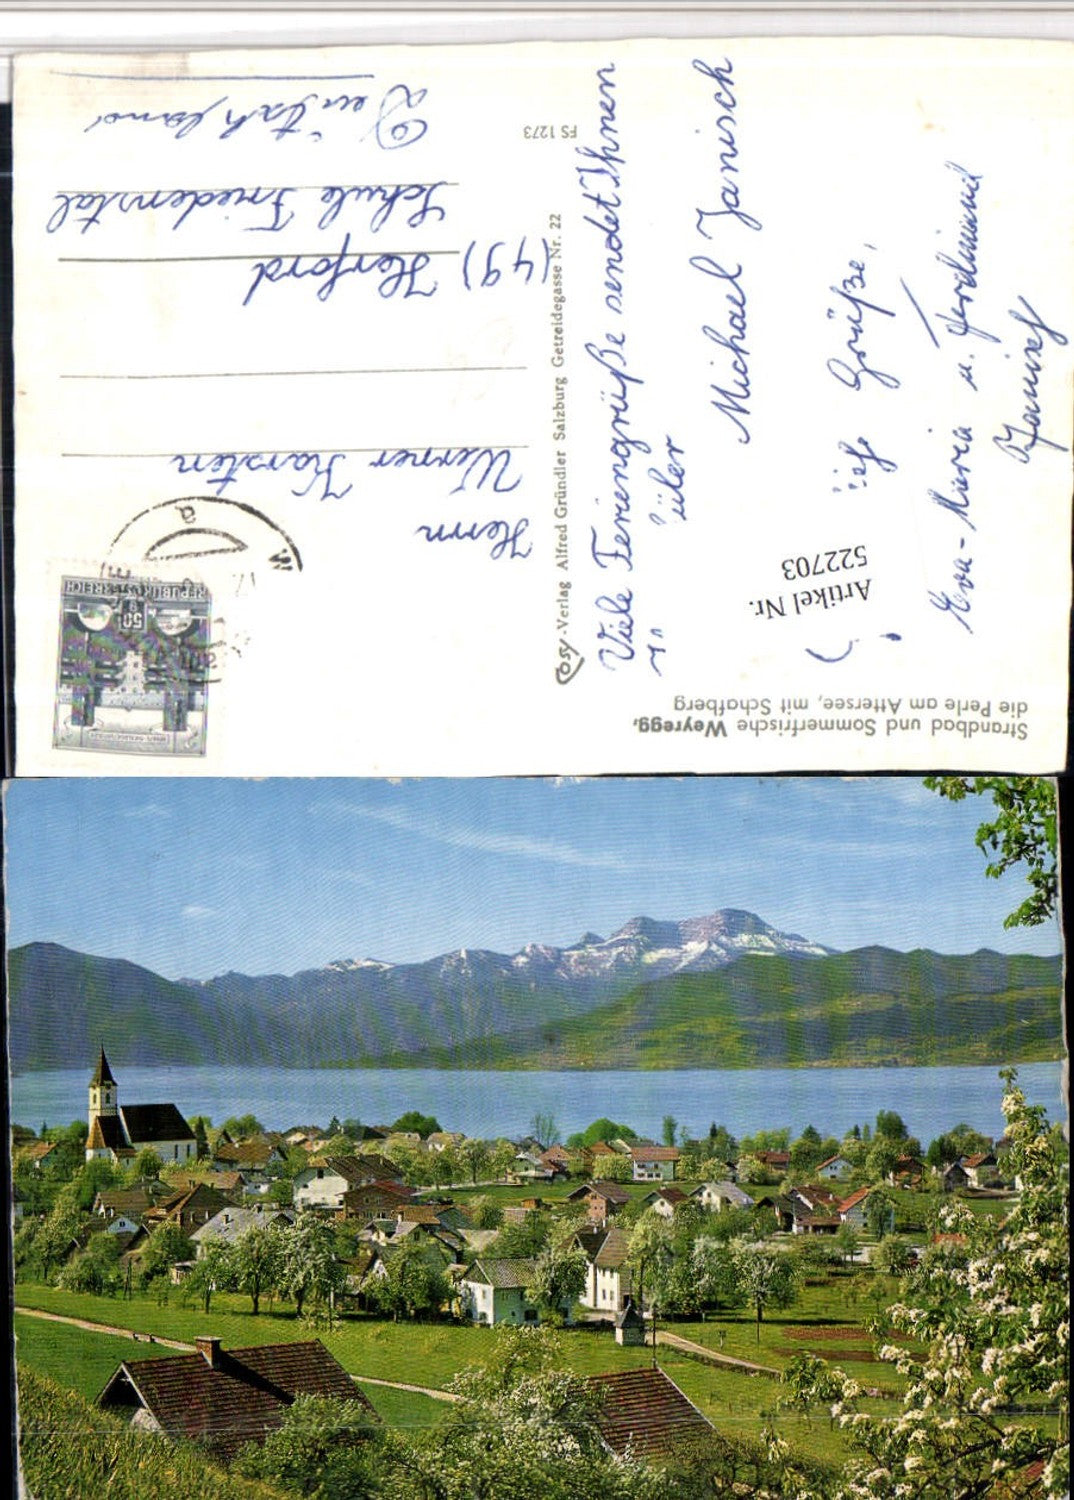 Strandbad und Sommerfrische Weyregg,
die Perle am Attersee, mit Schafberg
Artikel Nr.
522703
Viele Feriengrüße sendet Ihnen
Michael Janisch
Grüße,
Eva-Maria u. Ferdinand
Janisch
Cosy-Verlag Alfred Gründler Salzburg Getreidegasse Nr. 22
FS 1273
REPUBLIK ÖSTERREICH
50 g
Herrn
Werner Karsten
(49) Herford
Schule Friedenstal
Deutschland